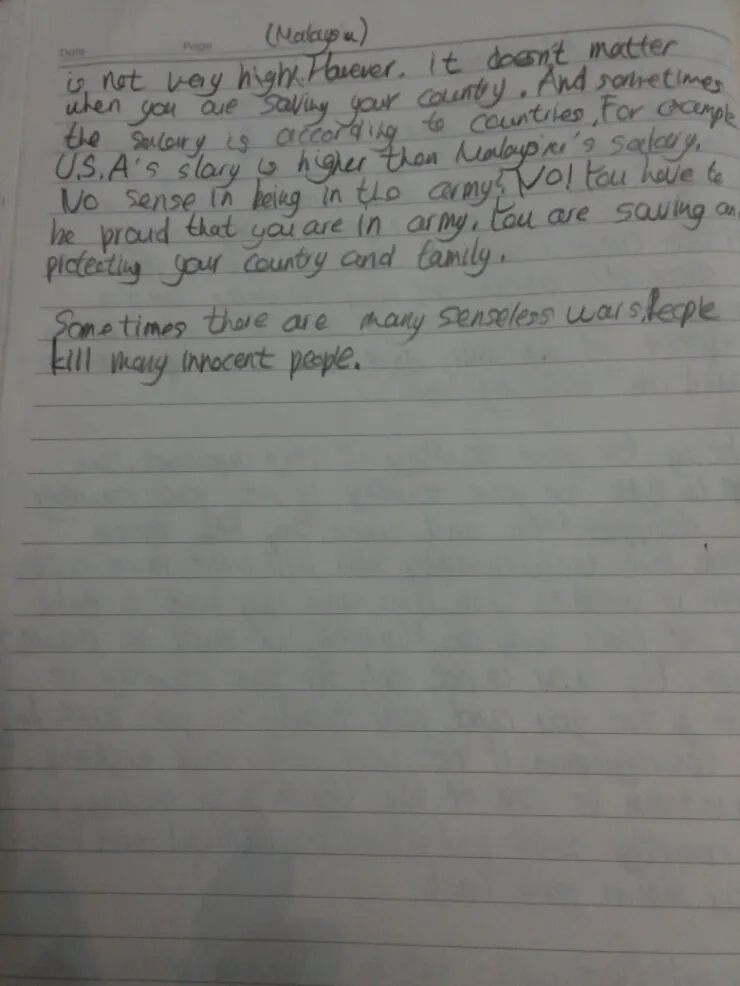 (Malaysia)
Date Page
is not very high. However, it doesn't matter
when you are saving your country. And sometimes
the salary is according to countries. For example
U.S.A's slary is higher than Malaysia's salary.
No sense in being in the army? NO! You have to
be proud that you are in army. You are saving an
protecting your country and family.
Sometimes there are many senseless wars. People
kill many innocent people.